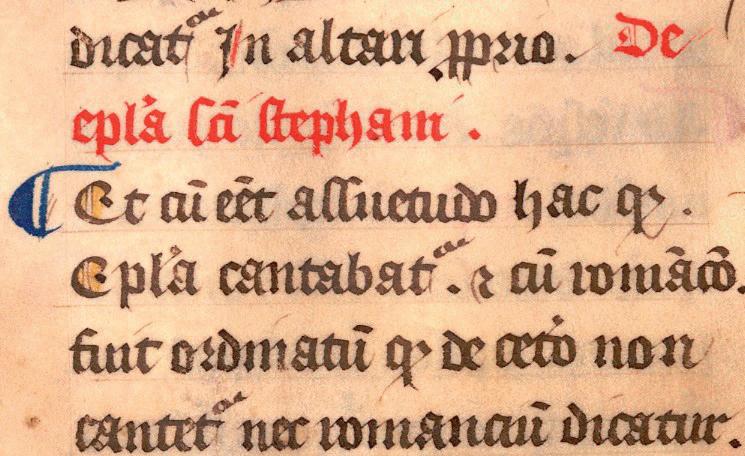 dicat᷑ In altari ꝓprio. De
epl'a sc̄i stephani.
¶ Et cū eēt assuetudo hac qꝫ.
Epl'a cantabat᷑. ⁊ cū romācō.
fuit ordinatū qꝫ de cet'o non
cantet᷑ nec romanciū dicatur.